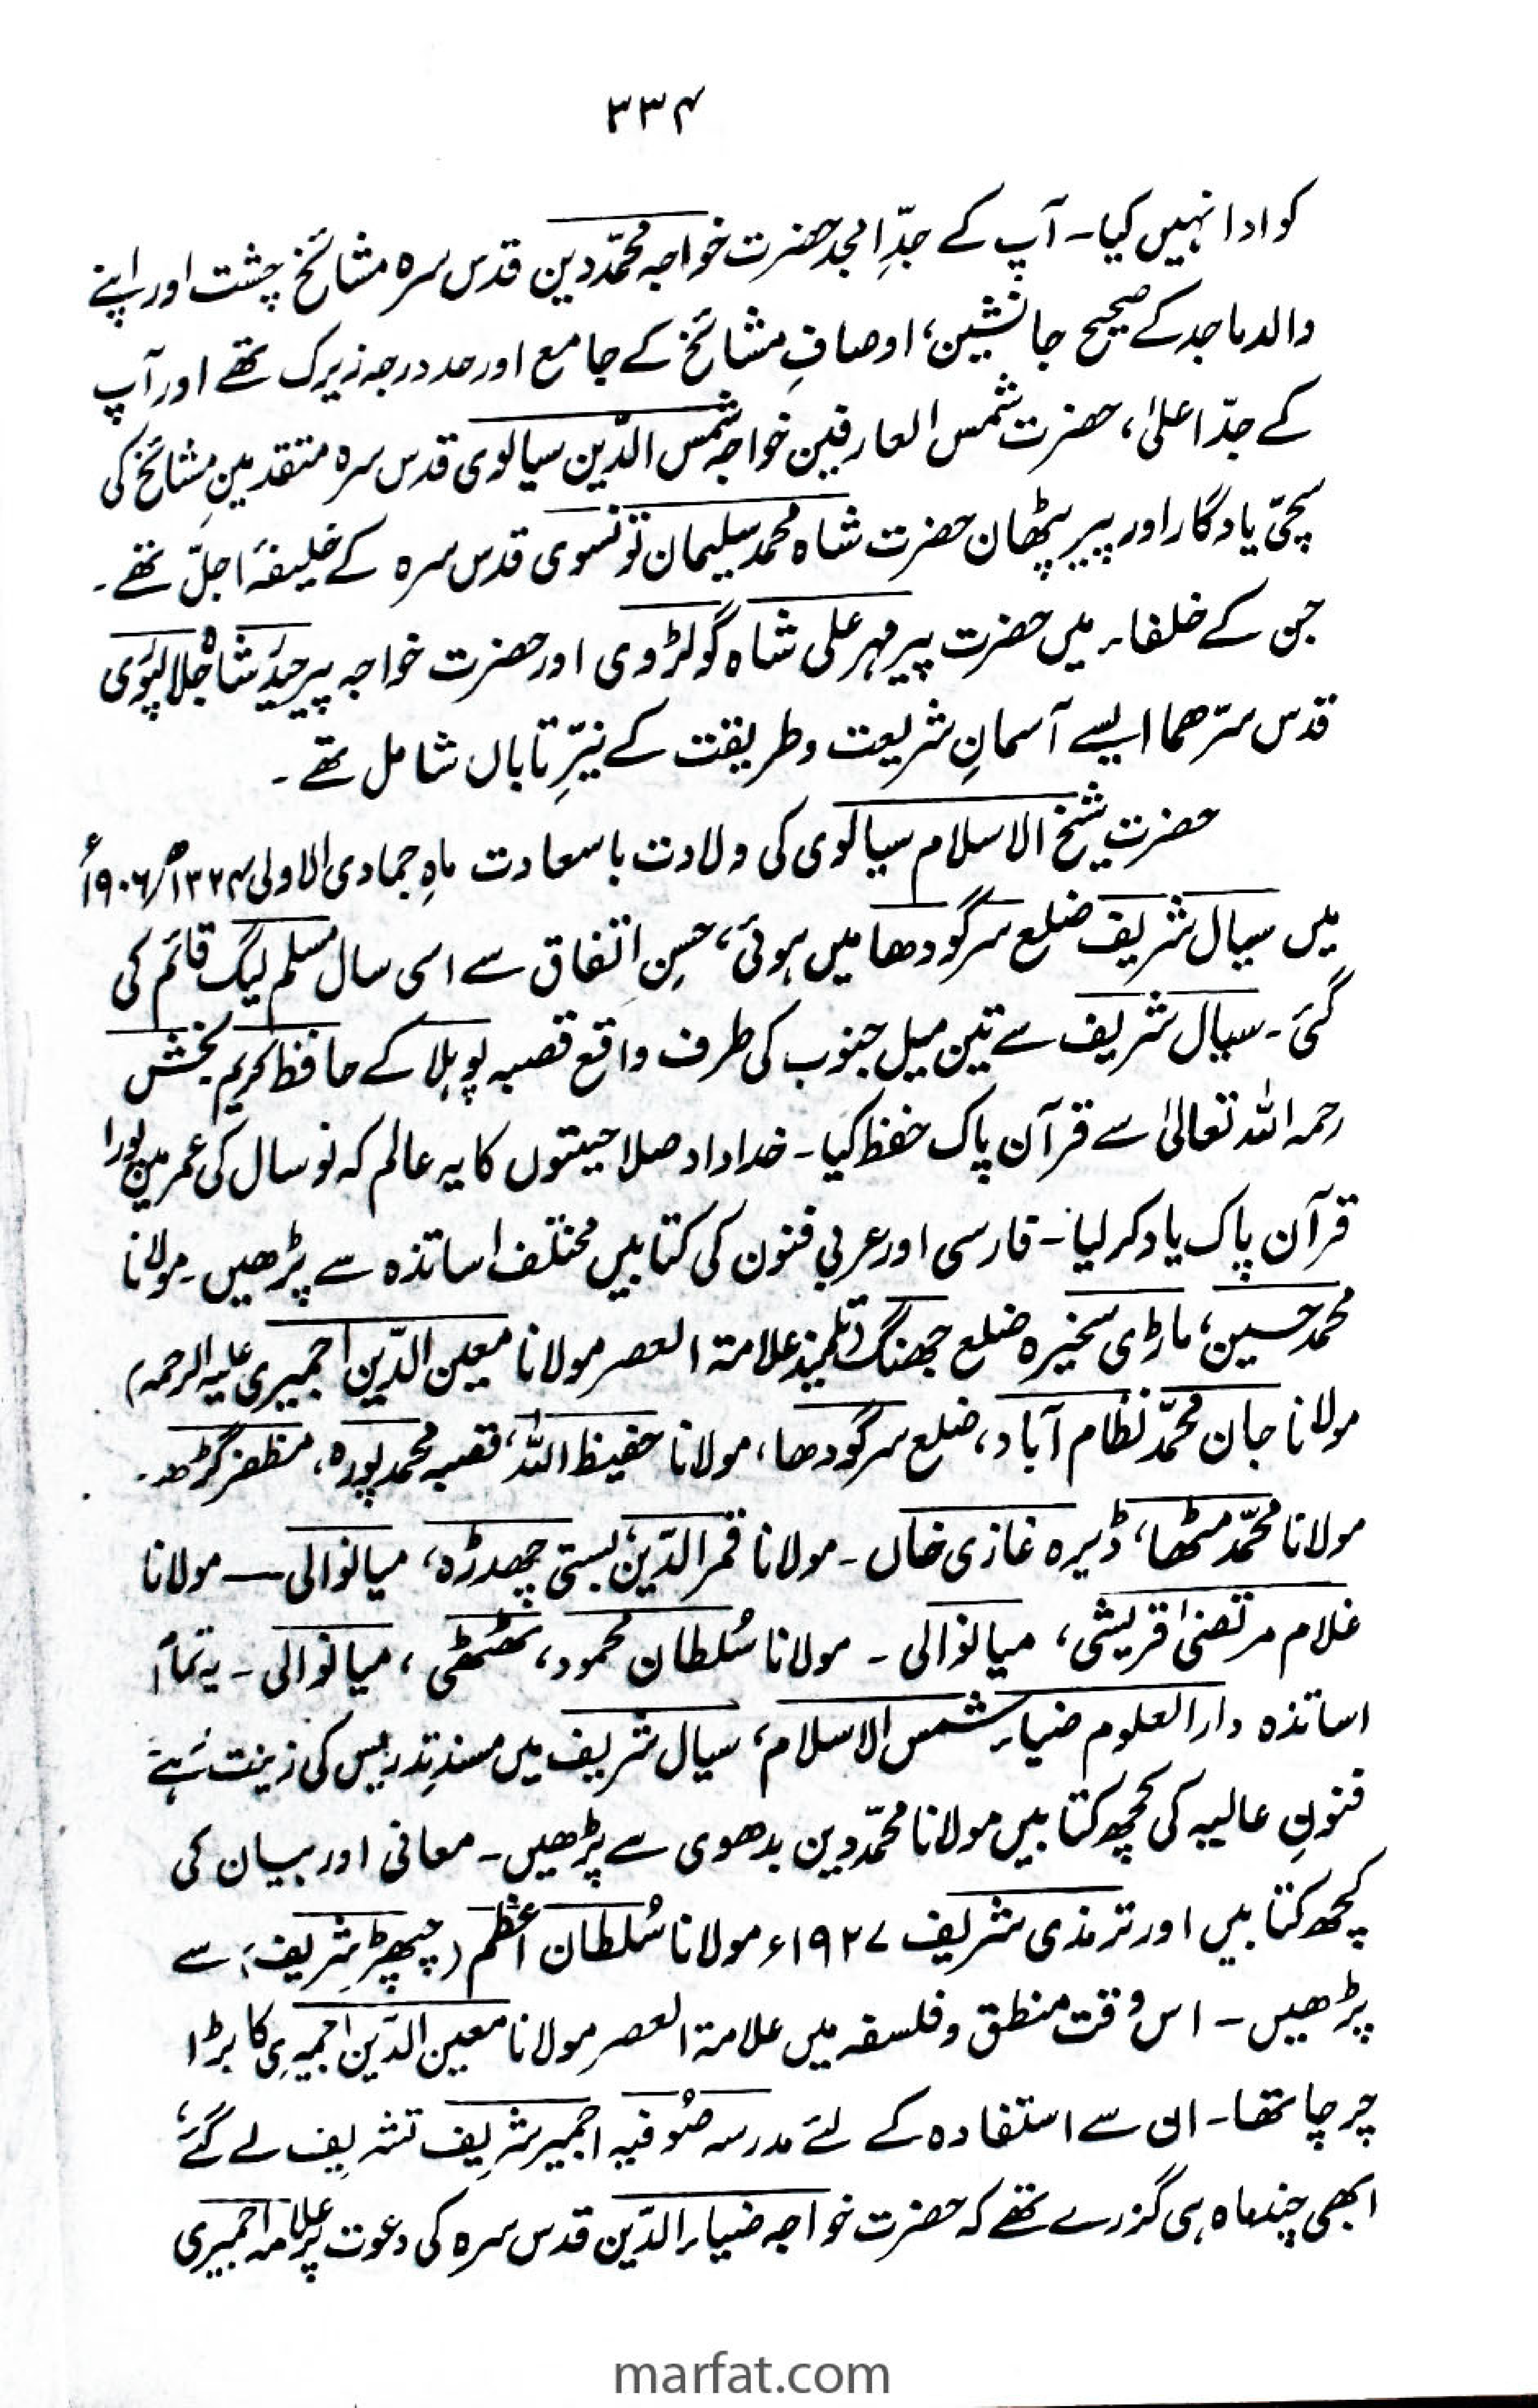 ۳۳۴
کو ادا نہیں کیا۔ آپ کے جدِّ امجد حضرت خواجہ محمّد دین قدس سرہ مشائخِ چشت اور اپنے
والد ماجد کے صحیح جانشین، اوصافِ مشائخ کے جامع اور حد درجہ زیرک تھے اور آپ
کے جدّ اعلیٰ، حضرت شمس العارفین خواجہ شمس الدّین سیالوی قدس سرہ متقدمینِ مشائخ کی
سچّی یادگار اور پیر پٹھان حضرت شاہ محمد سلیمان تونسوی قدس سرہ کے خلیفۂ اجلّ تھے۔
جن کے خلفاء میں حضرت پیر مہر علی شاہ گولڑوی اور حضرت خواجہ پیر حیدر شاہ جلالپوری
قدس سرّھما ایسے آسمانِ شریعت و طریقت کے نیّرِ تاباں شامل تھے۔
حضرت شیخ الاسلام سیالوی کی ولادت باسعادت ماہِ جمادی الاولی ۱۳۲۴ھ/۱۹۰۶ء
میں سیال شریف ضلع سرگودھا میں ہوئی، حسنِ اتفاق سے اسی سال مسلم لیگ قائم کی
گئی۔ سیال شریف سے تین میل جنوب کی طرف واقع قصبہ پوہلا کے حافظ کریم بخش
رحمہ اللہ تعالیٰ سے قرآن پاک حفظ کیا۔ خداداد صلاحیتوں کا یہ عالم کہ نو سال کی عمر میں پورا
قرآن پاک یاد کر لیا۔ فارسی اور عربی فنون کی کتابیں مختلف اساتذہ سے پڑھیں۔ مولانا
محمد حسین، ماڑی سخیرہ ضلع جھنگ (تلمیذ علامۃ العصر مولانا معین الدّین اجمیری علیہ الرحمہ)
مولانا جان محمّد نظام آباد، ضلع سرگودھا، مولانا حفیظ اللہ، قصبہ محمد پورہ، مظفر گڑھ۔
مولانا محمّد مٹھا، ڈیرہ غازی خاں۔ مولانا قمر الدّین، بستی چھدرڑہ، میانوالی — مولانا
غلام مرتضیٰ قریشی، میانوالی۔ مولانا سُلطان محمود، ٹھٹھی، میانوالی۔ یہ تمام
اساتذہ دارالعلوم ضیاء شمس الاسلام، سیال شریف میں مسندِ تدریس کی زینت رہے
فنونِ عالیہ کی کچھ کتابیں مولانا محمّد دین بدھوی سے پڑھیں۔ معانی اور بیان کی
کچھ کتابیں اور ترمذی شریف ۱۹۲۷ء مولانا سُلطان اعظم (چھپڑ شریف) سے
پڑھیں۔ اس وقت منطق و فلسفہ میں علامۃ العصر مولانا معین الدّین اجمیری کا بڑا
چرچا تھا۔ ان سے استفادہ کے لئے مدرسہ صُوفیہ اجمیر شریف تشریف لے گئے،
ابھی چند ماہ ہی گزرے تھے کہ حضرت خواجہ ضیاء الدّین قدس سرہ کی دعوت پر علامہ اجمیری
marfat.com